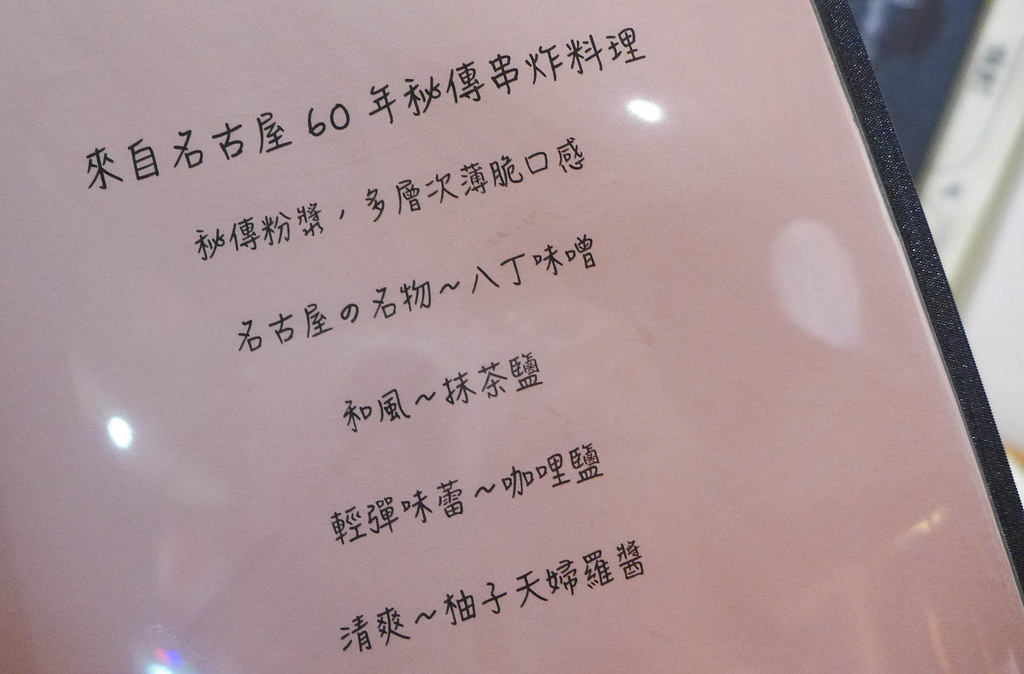 來自名古屋60年秘傳串炸料理
秘傳粉漿，多層次薄脆口感
名古屋の名物～八丁味噌
和風～抹茶鹽
輕彈味蕾～咖哩鹽
清爽～柚子天婦羅醬